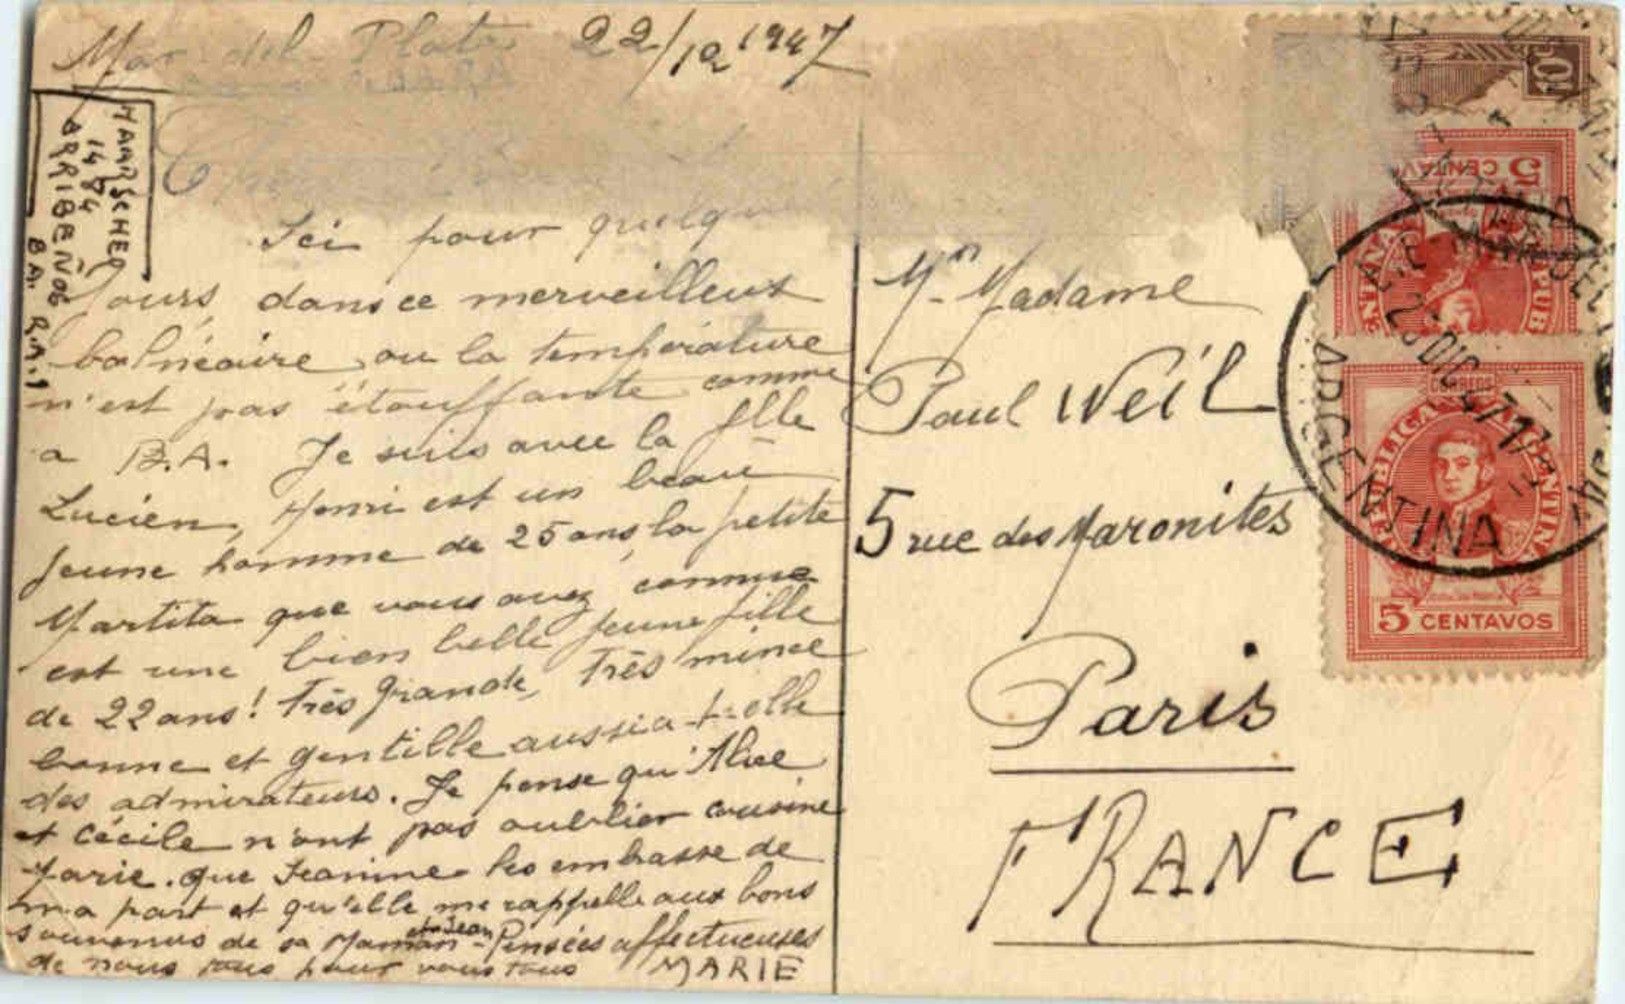 Mar del Plata 22/12 1947
HAMRSCHER
1484
ARRIBEÑOS
BM. R.A.
Ici pour quelq
Jours, dans ce merveilleux
balnéaire ou la température
n'est pas étouffante comme
a B.A. Je suis avec la flle
Lucien, Henri est un beau
jeune homme de 25 ans, la petite
Martita que vous avez connue
est une bien belle jeune fille
de 22 ans! très grande, très mince
bonne et gentille aussi a-t-elle
des admirateurs. Je pense qu'Alice
et Cécile n'ont pas oublier cousine
Marie. que Jeanine les embrasse de
ma part et qu'elle me rappelle aux bons
souvenirs de sa Maman et Jean - Pensées affectueuses
de nous tous pour vous tous MARIE
Mr Madame
Paul Weil
5 rue des Maronites
Paris
FRANCE
10
5 CENTAV
CORREOS
REPUBLICA ARGENTINA
5 CENTAVOS
22 DIC 47 17
ARGENTINA